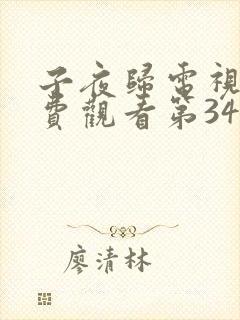 子夜歸電視
費觀看第34
廖清林